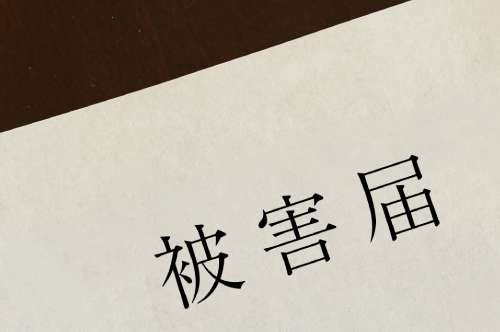 被害届